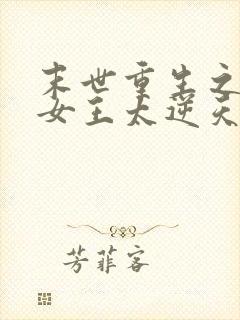 末世重生之
女王太逆天
芳菲客